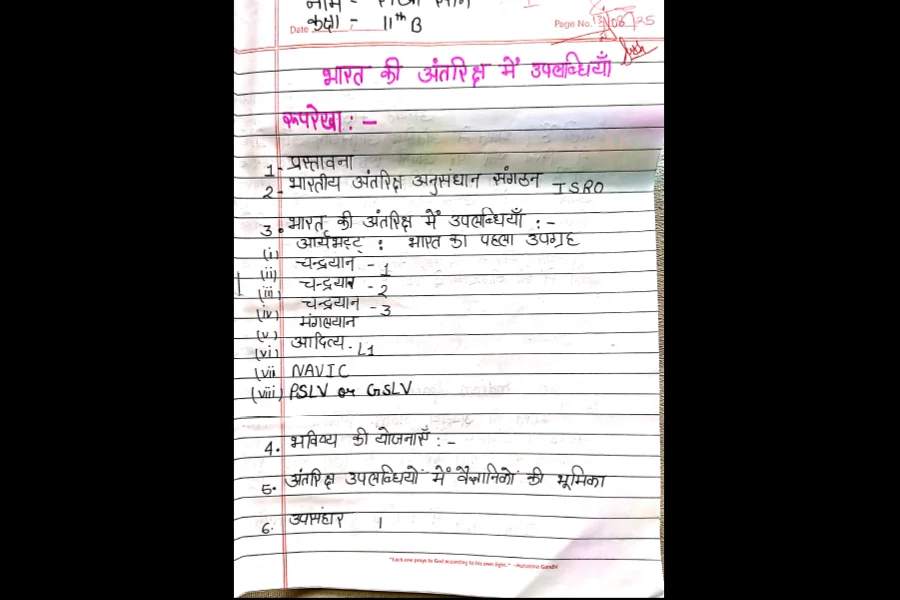 नाम -
कक्षा - 11th B
Date
Page No. 08/25
भारत की अंतरिक्ष में उपलब्धियाँ
रूपरेखा : -
1 - प्रस्तावना
2 - भारतीय अंतरिक्ष अनुसंधान संगठन ISRO
3. भारत की अंतरिक्ष में उपलब्धियाँ :-
(i) आर्यभट्ट : भारत का पहला उपग्रह
(ii) चन्द्रयान - 1
(iii) चन्द्रयान - 2
(iv) चन्द्रयान - 3
(v) मंगलयान
(vi) आदित्य - L1
(vii NAVIC
(viii) PSLV or GSLV
4. भविष्य की योजनाएँ :-
5. अंतरिक्ष उपलब्धियों में वैज्ञानिकों की भूमिका
6. उपसंहार ।
"Each one prays to God according to his own light." -Mahatma Gandhi